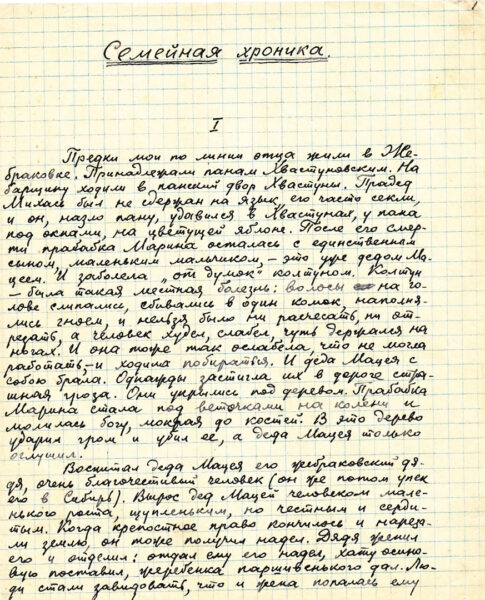 1
Семейная хроника.
I
Предки мои по линии отца жили в Же-
браковке. Принадлежали панам Хвастуновским. На
барщину ходили в панский двор Хвастуны. Прадед
Михась был не сдержан на язык, его часто секли,
и он, назло пану, удавился в Хвастунах, у пана
под окнами, на цветущей яблоне. После его смер-
ти прабабка Марина осталась с единственным
сыном, маленьким мальчиком, – это уже дедом Ма-
цеем. И заболела „от думок" колтуном. Колтун
– была такая местная болезнь: волосы на го-
лове слипались, сбивались в один комок, наполня-
лись гноем, и нельзя было ни расчесать, ни от-
резать, а человек худел, слабел, чуть держался на
ногах. И она тоже так ослабела, что не могла
работать – и ходила побираться. И деда Мацея с
собою брала. Однажды застигла их в дороге стра-
шная гроза. Они укрылись под деревом. Прабабка
Марина стала под веточками на колени и
молилась богу, мокрая до костей. В это дерево
ударил гром и убил ее, а деда Мацея только
оглушил.
Воспитал деда Мацея его жебраковский дя-
дя, очень благочестивый человек (он же потом упек
его в Сибирь). Вырос дед Мацей человеком мале-
нького роста, щупленьким, но честным и серди-
тым. Когда крепостное право кончилось и нареза-
ли землю, он тоже получил надел. Дядя женил
его и отделил: отдал ему его надел, хату осино-
вую поставил, жеребенка паршивенького дал. Лю-
ди стали завидовать, что и жена попалась ему